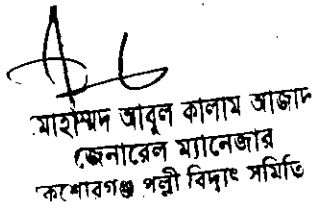 মাহাম্মদ আবুল কালাম আজাদ
জেনারেল ম্যানেজার
কিশোরগঞ্জ পল্লী বিদ্যুৎ সমিতি